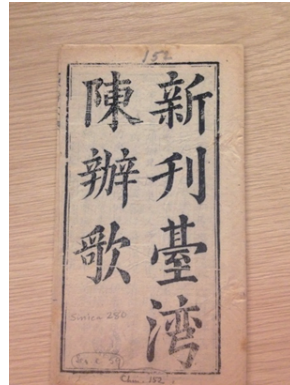 152
新刊臺湾
陳辦歌
Sinica 280
Chin. 152